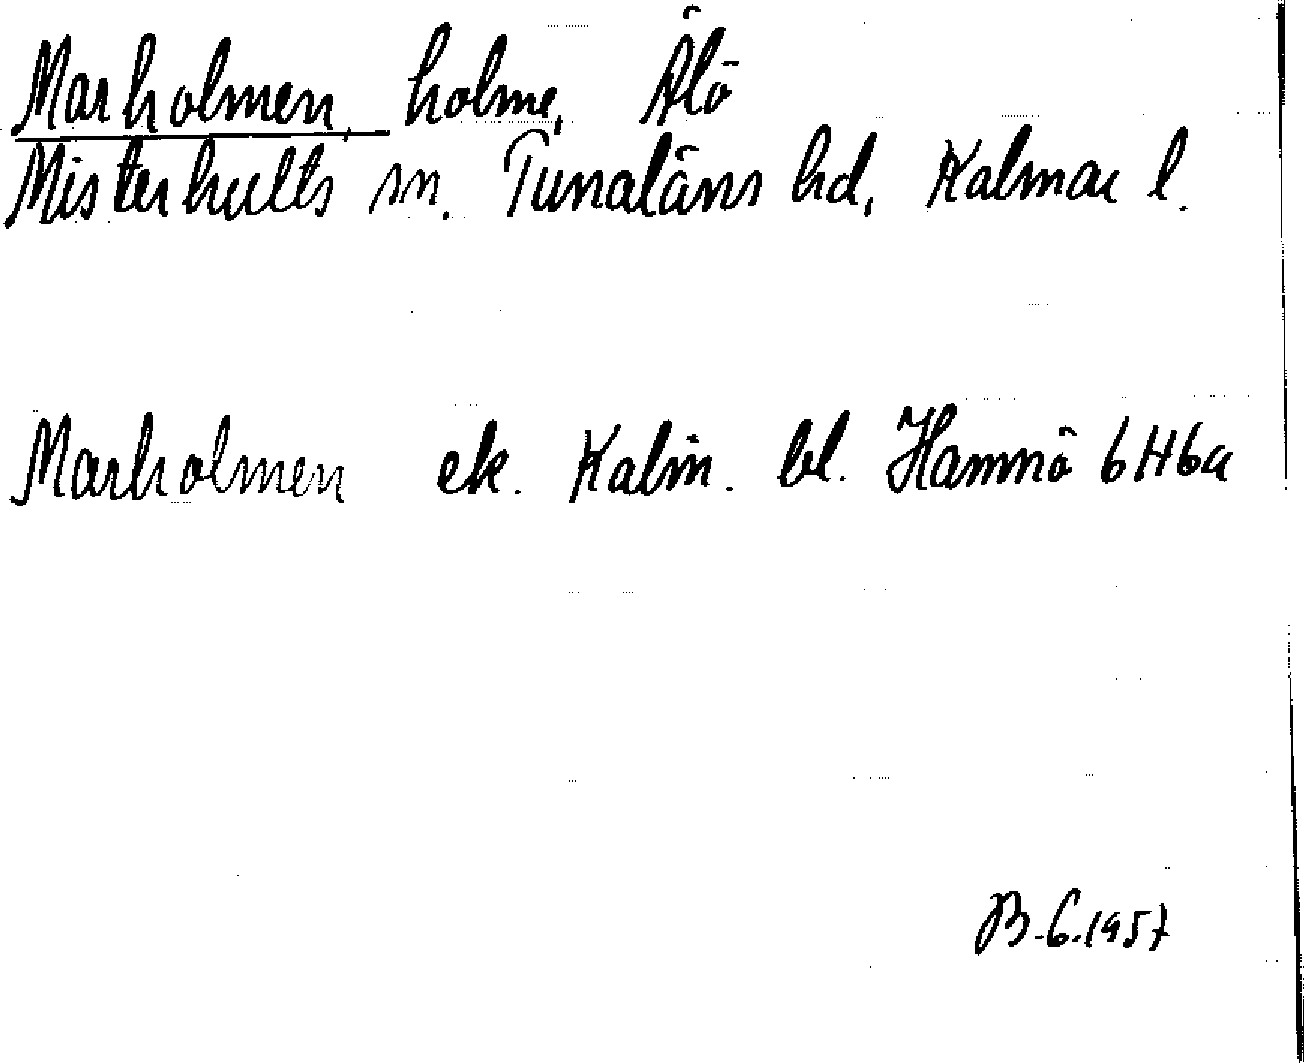 Marholmen, holme, Älö
Misterhults sn. Tunaläns hd, Kalmar l.
Marholmen ek. Kalm. bl. Hamnö 6H6a
B.G.1957